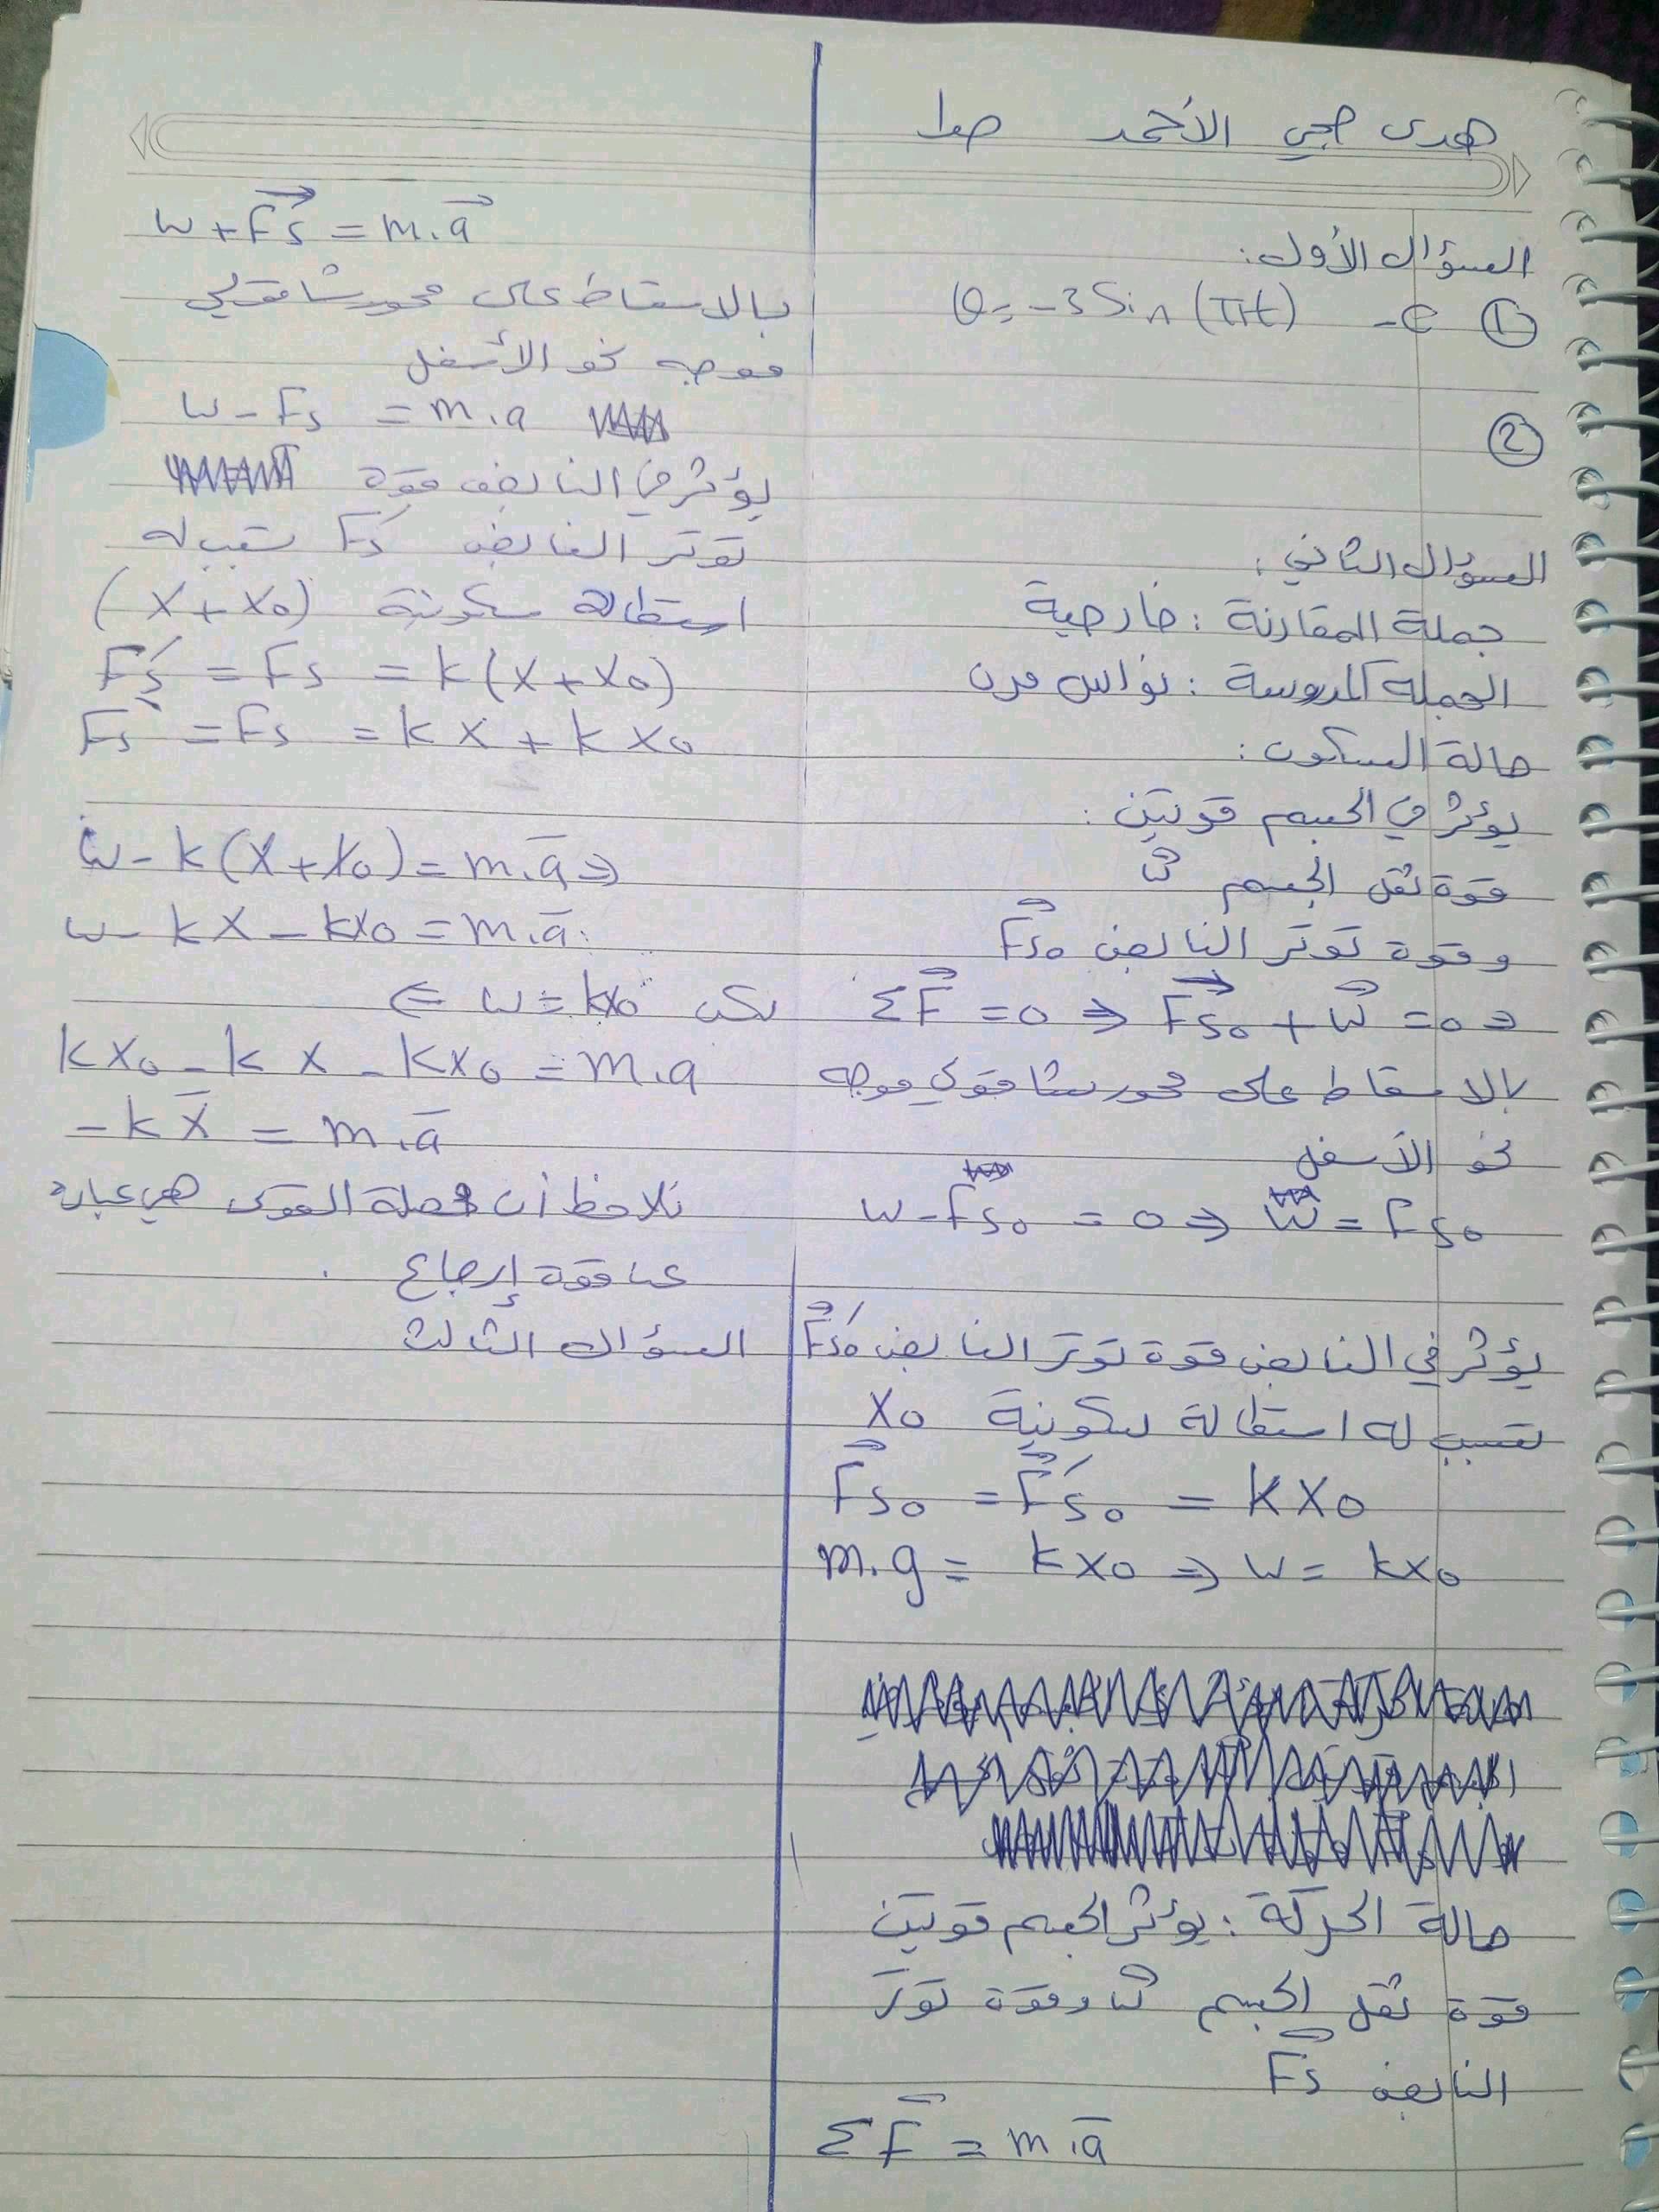 هدى صبحي الأحمد
السؤال الأول:
① c- Q = -3 Sin (πt)
②
السؤال الثاني:
جملة المقارنة : خارجية
الجملة المدروسة : نواس مرن
حالة السكون:
يؤثر في الجسم قوتين :
قوة ثقل الجسم w⃗
وقوة توتر النابض F⃗s₀
ΣF⃗ = 0 ⇒ F⃗s₀ + w⃗ = 0 ⇒
بالاسقاط على محور شاقولي موجه
نحو الأسفل
w - Fs₀ = 0 ⇒ w = Fs₀
يؤثر في النابض قوة توتر النابض F⃗s₀′
تسبب له استطالة سكونية x₀
F⃗s₀ = F⃗′s₀ = k x₀
m.g = k x₀ ⇒ w = k x₀
حالة الحركة : يؤثر الجسم قوتين
قوة ثقل الجسم w⃗ وقوة توتر
النابض F⃗s
ΣF⃗ = m.a̅
w + F⃗s = m.a⃗
بالاسقاط على محور شاقولي
موجه نحو الأسفل
w - Fs = m.a
يؤثر في النابض قوة
توتر النابض F′s تسبب له
استطالة سكونية (x + x₀)
F′s = Fs = k(x + x₀)
F′s = Fs = k x + k x₀
w - k(x + x₀) = m.a̅ ⇒
w - kx - kx₀ = m.a̅
لكن w = kx₀ ⇐
k x₀ - k x - k x₀ = m.a
- k x̅ = m.a̅
نلاحظ أن محصلة القوى هي عبارة
عن قوة إرجاع .
السؤال الثالث